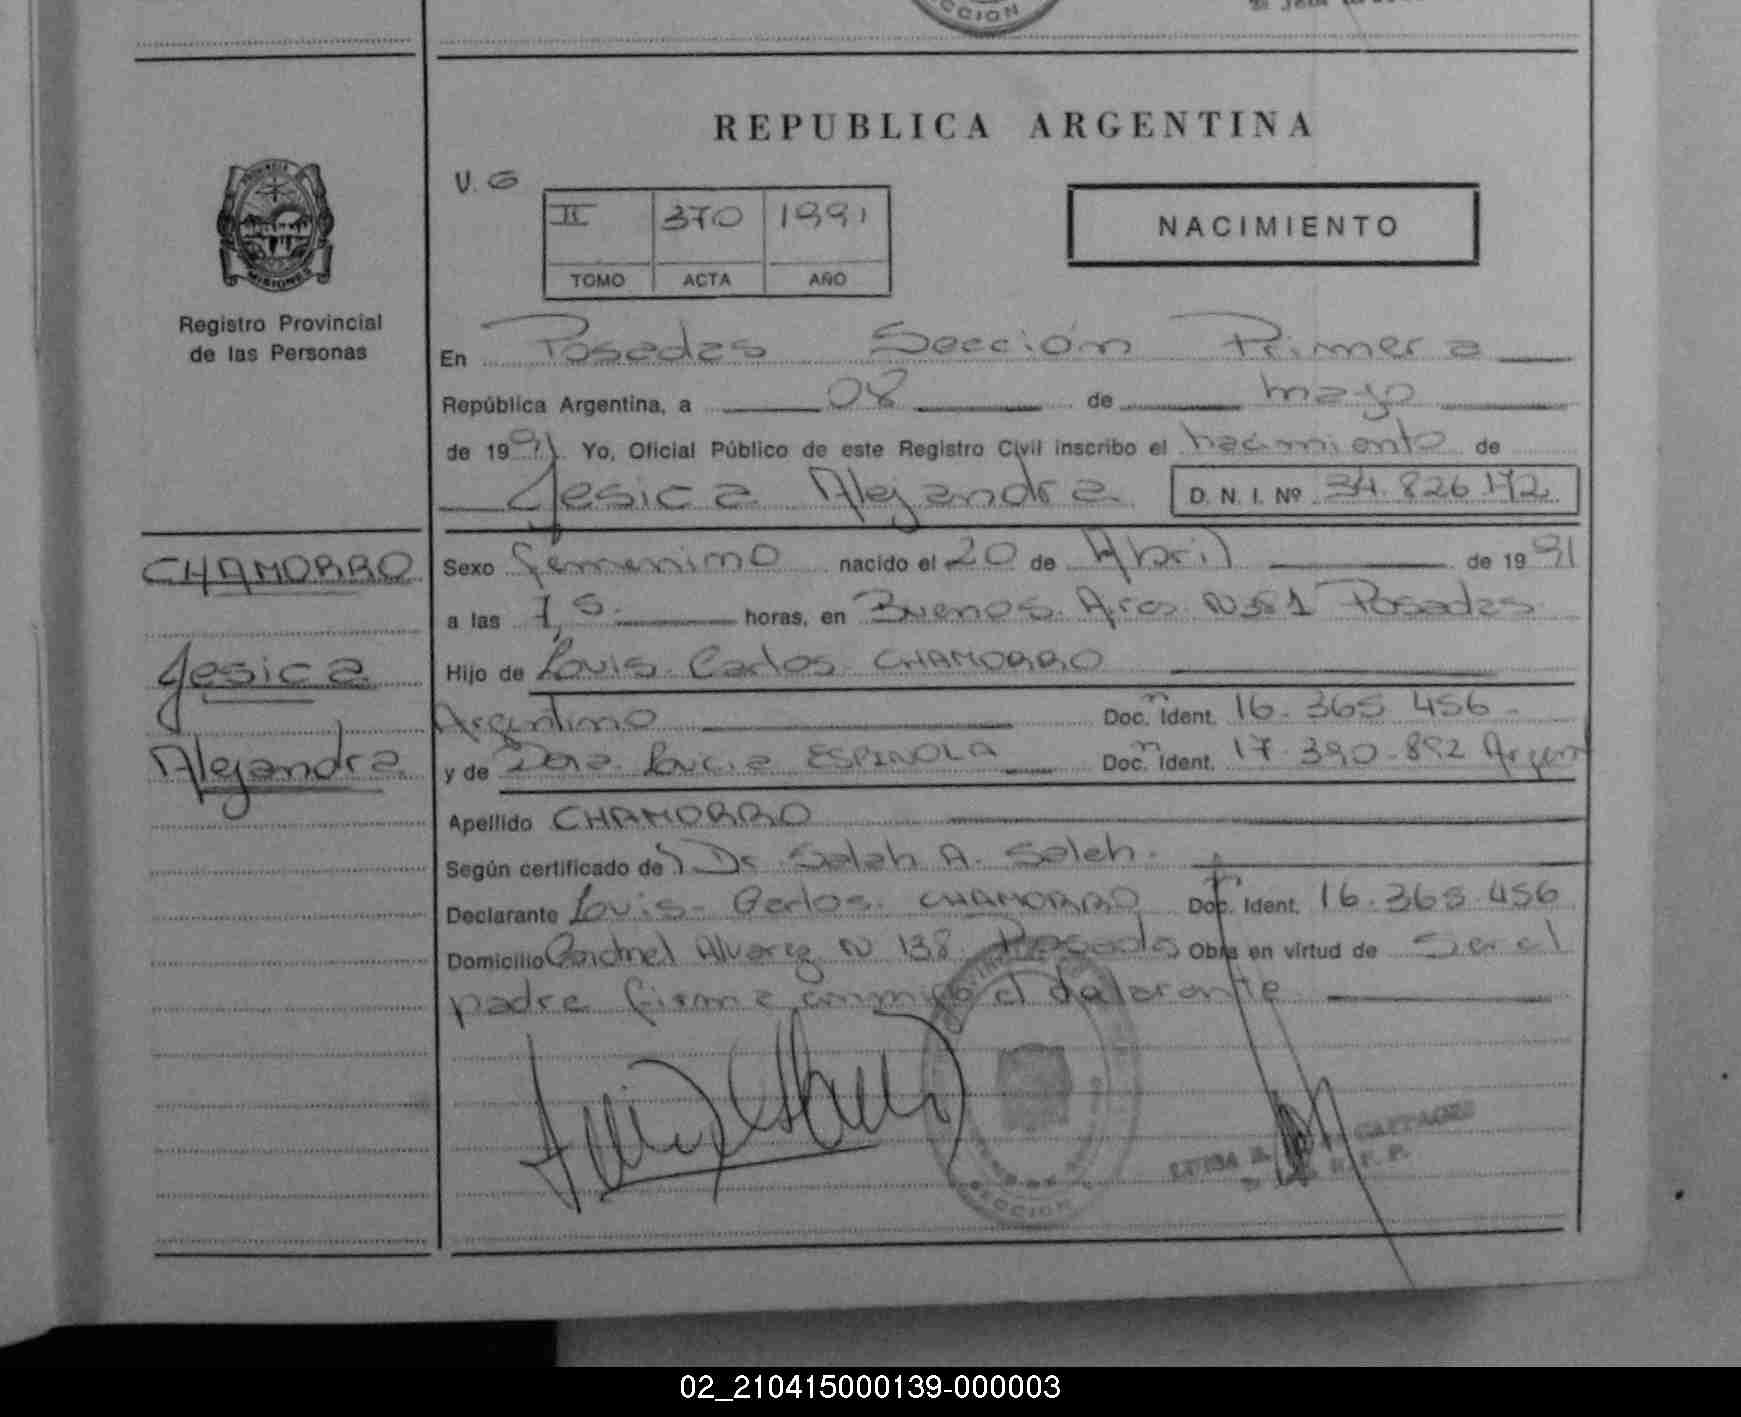 CCION
REPUBLICA ARGENTINA
V. G
PROVINCIA
MISIONES
II 370 1991
TOMO ACTA AÑO
NACIMIENTO
Registro Provincial
de las Personas
En Posadas Sección Primera
República Argentina, a 08 de mayo
de 1991. Yo, Oficial Público de este Registro Civil inscribo el nacimiento de
Jesica Alejandra D. N. I. Nº 34.826.172
CHAMORRO
Jesica
Alejandra
Sexo femenino nacido el 20 de Abril de 1991
a las 7,5. horas, en Buenos Aires N 381 Posadas
Hijo de Louis Carlos CHAMORRO
Argentino Doc. n Ident. 16.365.456.
y de Lucia ESPINOLA Doc. n Ident. 17.390.892 Argen
Apellido CHAMORRO
Según certificado de Dr Saleh A. Saleh.
Declarante Louis Carlos CHAMORRO Doc. Ident. 16.365.456
Domicilio Coronel Alvarez N 138 Posadas Obra en virtud de Ser el
padre firma conmigo el declarante
SECCION
LUISA
R. P. P.
02_210415000139-000003